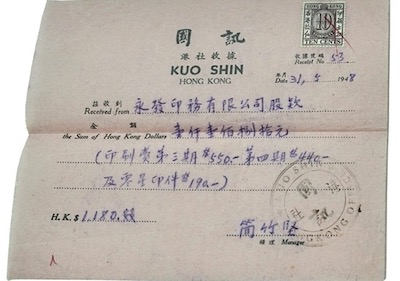 國訊
港社收據
KUO SHIN
HONG KONG
10
TEN CENTS
收據號碼
Receipt No. 53
年月
Date 31, 5 1948
茲收到
Received from 永發印務有限公司股款
金額
the Sum of Hong Kong Dollars 壹仟壹佰捌拾元
(印刷費第三期$550.- 第四期$440.-
及零星印件$190.-)
H.K.$ 1,180.
竹堅
經理 Manager